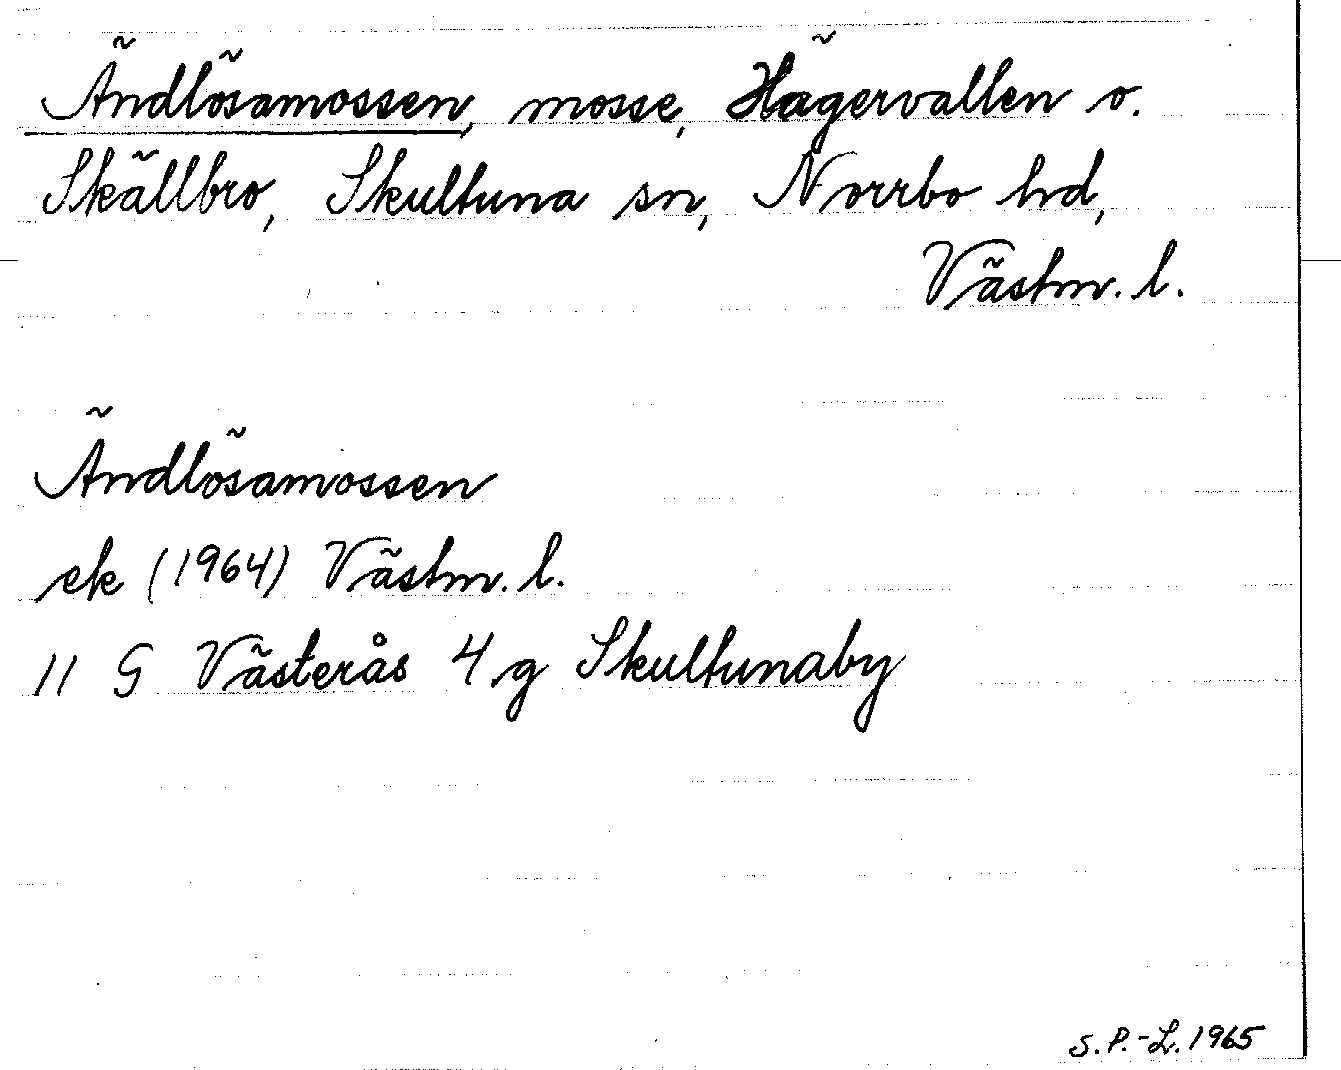 Ändlösamossen, mosse, Hägervallen o.
Skällbro, Skultuna sn, Norrbo hd,
Västm. l.
Ändlösamossen
ek (1964) Västm. l.
11 G Västerås 4 g Skultunaby
S. P.-L. 1965